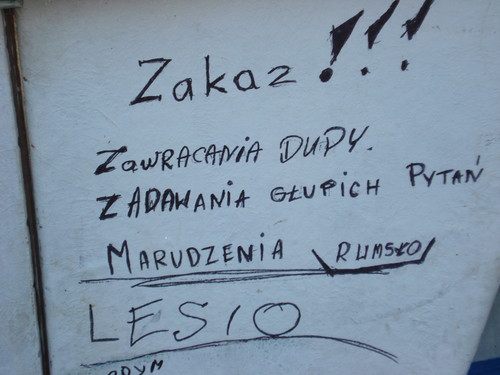 Zakaz !!!
ZAWRACANIA DUPY.
ZADAWANIA GŁUPICH PYTAŃ
MARUDZENIA RUMSŁO
LESIO